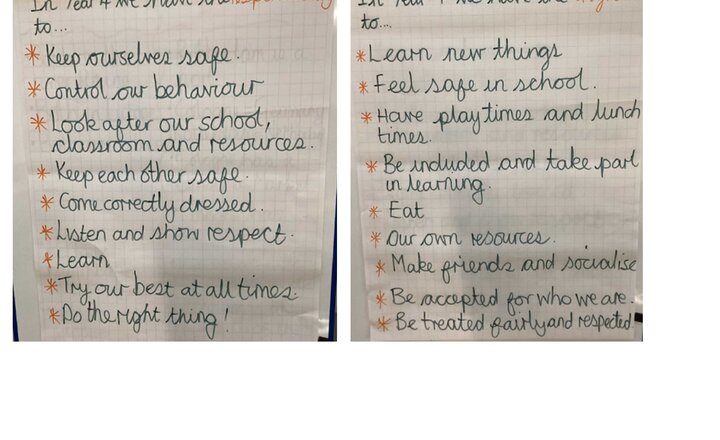 In Year 4 we have the responsibility
to...
* Keep ourselves safe.
* Control our behaviour
* Look after our school,
classroom and resources.
* Keep each other safe.
* Come correctly dressed.
* Listen and show respect.
* Learn
* Try our best at all times.
* Do the right thing!
In Year 4 we have the
to...
* Learn new things
* Feel safe in school.
* Have playtimes and lunch
times.
* Be included and take part
in learning.
* Eat
* Our own resources.
* Make friends and socialise
* Be accepted for who we are.
* Be treated fairly and respected.